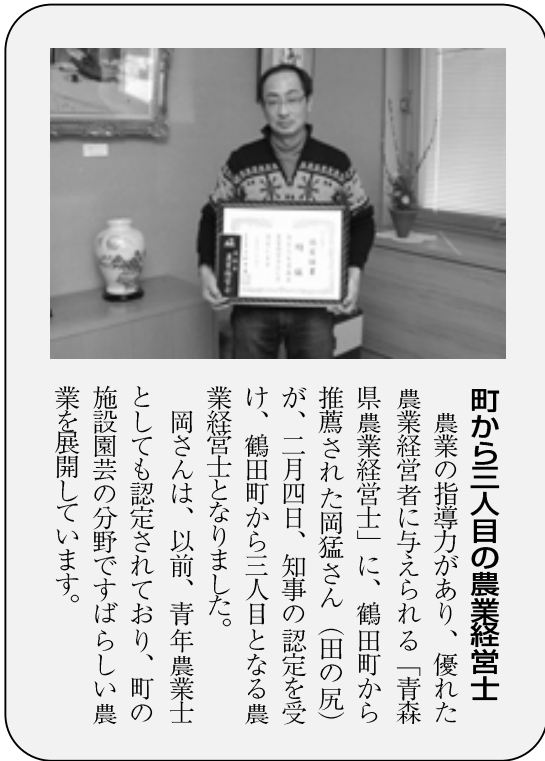 町から三人目の農業経営士
農業の指導力があり、優れた
農業経営者に与えられる「青森
県農業経営士」に、鶴田町から
推薦された岡猛さん（田の尻）
が、二月四日、知事の認定を受
け、鶴田町から三人目となる農
業経営士となりました。
岡さんは、以前、青年農業士
としても認定されており、町の
施設園芸の分野ですばらしい農
業を展開しています。